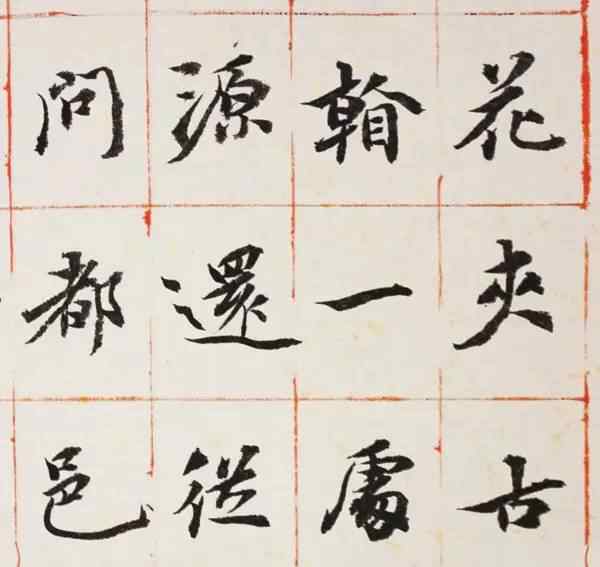 花夾古
看一處
源還從
問都邑